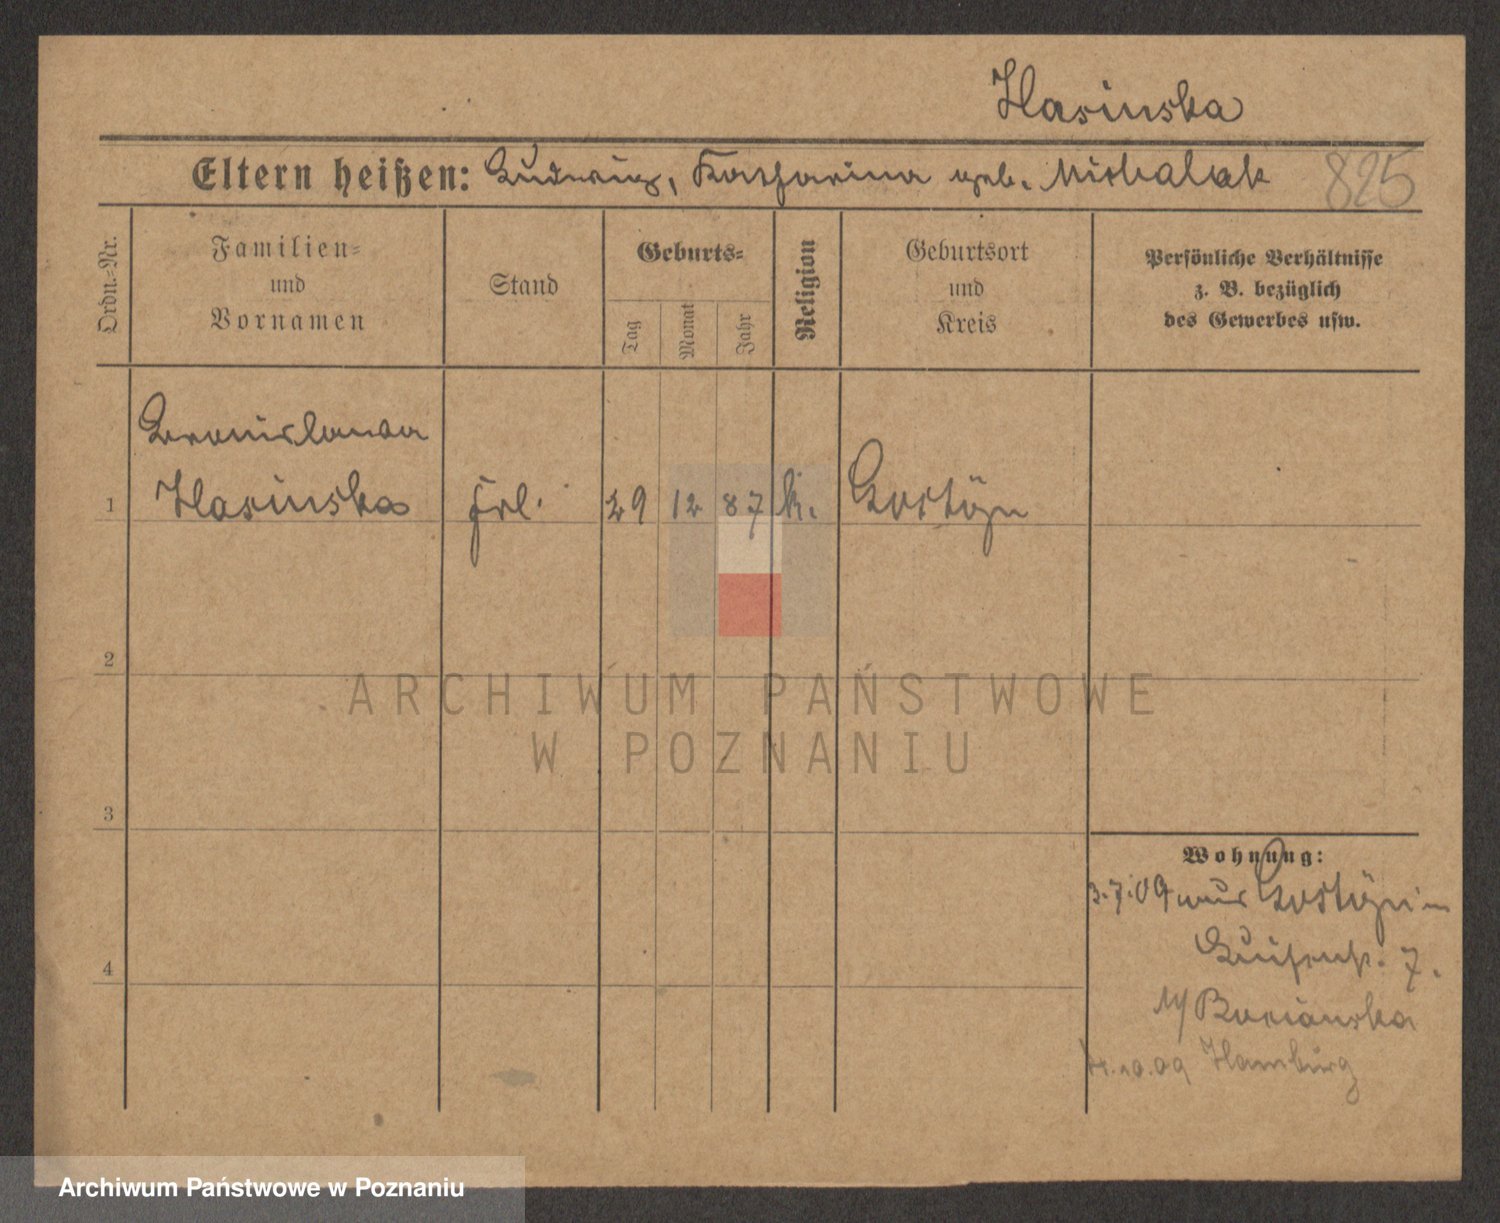 Hasinska
Eltern heißen: Ludwig, Katharina geb. Michalak
825
Ordn.-Nr.
Familien-
und
Vornamen
Stand
Geburts-
Tag
Monat
Jahr
Religion
Geburtsort
und
Kreis
Persönliche Verhältnisse
z. B. bezüglich
des Gewerbes usw.
Bronislawa
1 Hasinska Frl. 29 12 87 k. Gostÿn
2
ARCHIWUM PAŃSTWOWE
W POZNANIU
3
Wohnung:
3.7.09 aus Gostÿn in
Luisenst. 7.
4
Hamburg
Archiwum Państwowe w Poznaniu